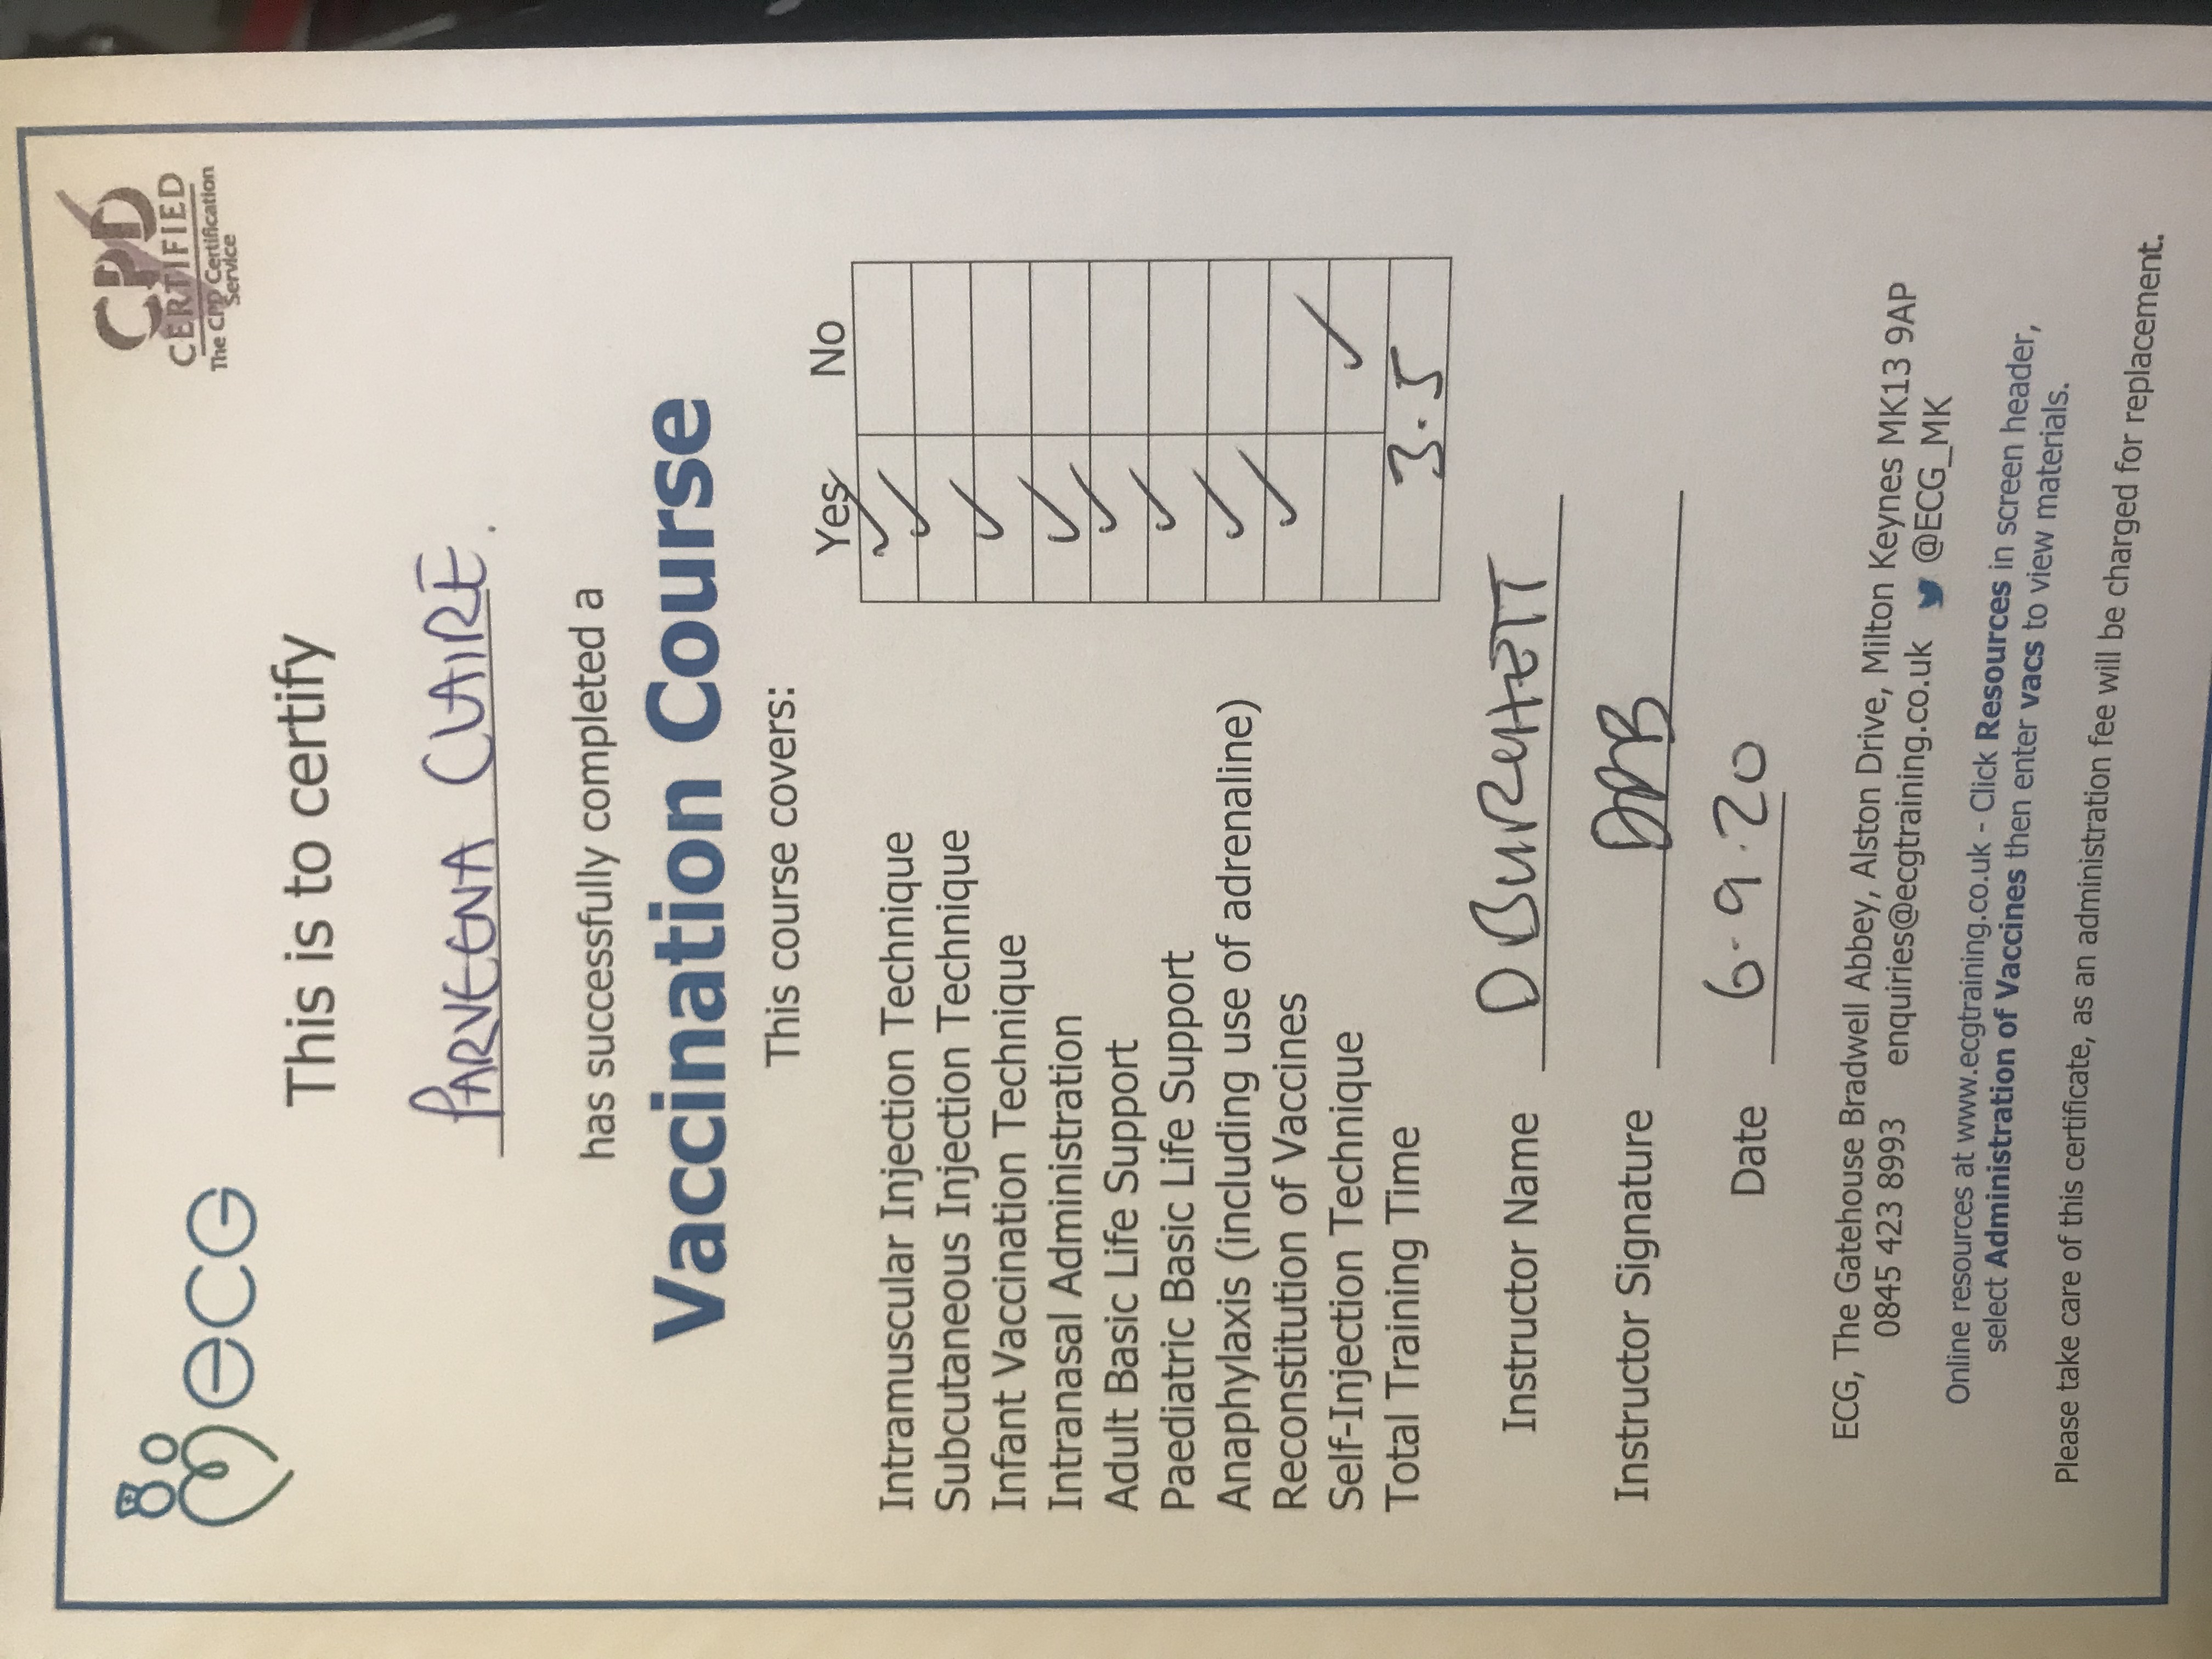 ecg
CPD
CERTIFIED
The CPD Certification
Service
This is to certify
PARVEENA CLAIRE.
has successfully completed a
Vaccination Course
This course covers:
Yes No
Intramuscular Injection Technique ✓
Subcutaneous Injection Technique ✓
Infant Vaccination Technique ✓
Intranasal Administration ✓
Adult Basic Life Support ✓
Paediatric Basic Life Support ✓
Anaphylaxis (including use of adrenaline) ✓
Reconstitution of Vaccines ✓
Self-Injection Technique ✓
Total Training Time 3.5
Instructor Name D BURCHETT
Instructor Signature DDB
Date 6.9.20
ECG, The Gatehouse Bradwell Abbey, Alston Drive, Milton Keynes MK13 9AP
0845 423 8993 enquiries@ecgtraining.co.uk @ECG_MK
Online resources at www.ecgtraining.co.uk - Click Resources in screen header,
select Administration of Vaccines then enter vacs to view materials.
Please take care of this certificate, as an administration fee will be charged for replacement.